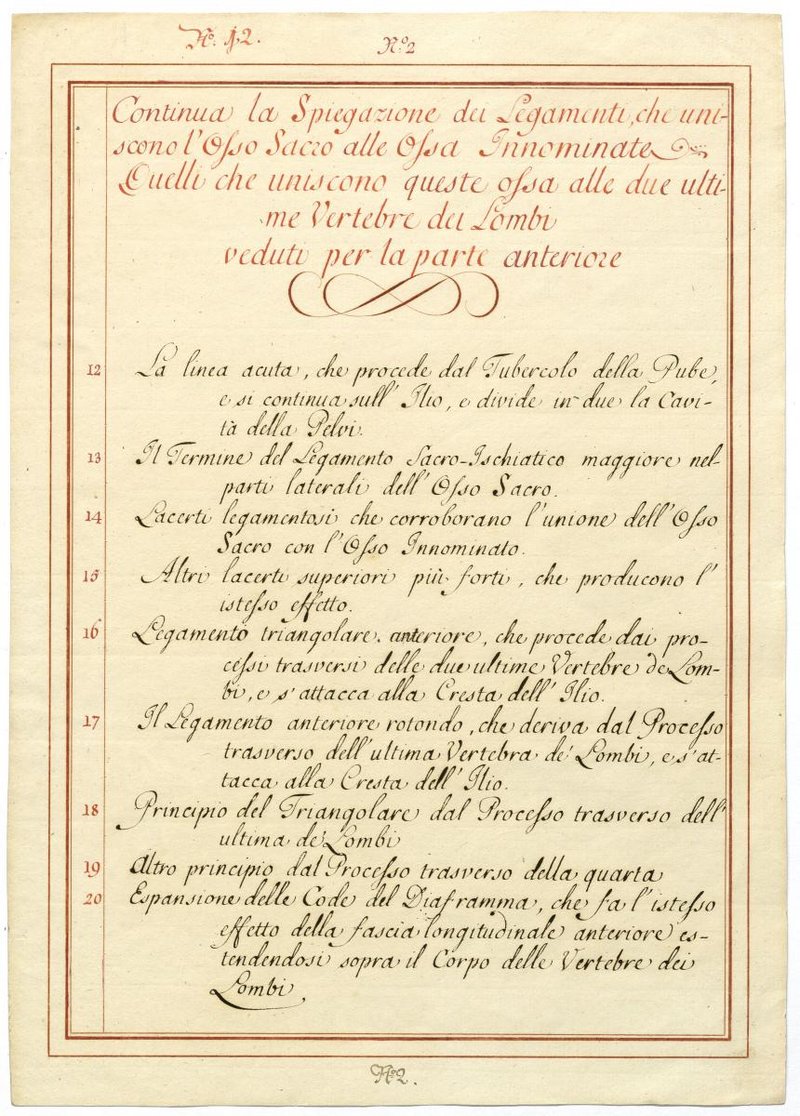 No. 12.
No. 2
Continua la Spiegazione dei Legamenti, che uni-
scono l'Osso Sacro alle Ossa Innominate
Quelli che uniscono queste ossa alle due ulti-
me Vertebre dei Lombi
veduti per la parte anteriore
12 La linea acuta, che procede dal Tubercolo della Pube,
e si continua sull' Ilio, e divide in due la Cavi-
tà della Pelvi.
13 Il Termine del Legamento Sacro-Ischiatico maggiore nel-
parti laterali dell' Osso Sacro.
14 Lacerti legamentosi che corroborano l'unione dell' Osso
Sacro con l'Osso Innominato.
15 Altri lacerti superiori più forti, che producono l'
istesso effetto.
16 Legamento triangolare. anteriore, che procede dai pro-
cessi trasversi delle due ultime Vertebre de Lom-
bi, e s'attacca alla Cresta dell' Ilio.
17 Il Legamento anteriore rotondo, che deriva dal Processo
trasverso dell' ultima Vertebra de' Lombi, e s'at-
tacca alla Cresta dell' Ilio.
18 Principio del Triangolare dal Processo trasverso dell'
ultima de' Lombi
19 Altro principio dal Processo trasverso della quarta
20 Espansione delle Code del Diaframma, che fa l'istesso
effetto della fascia longitudinale anteriore es-
tendendosi sopra il Corpo delle Vertebre dei
Lombi.
No. 2.